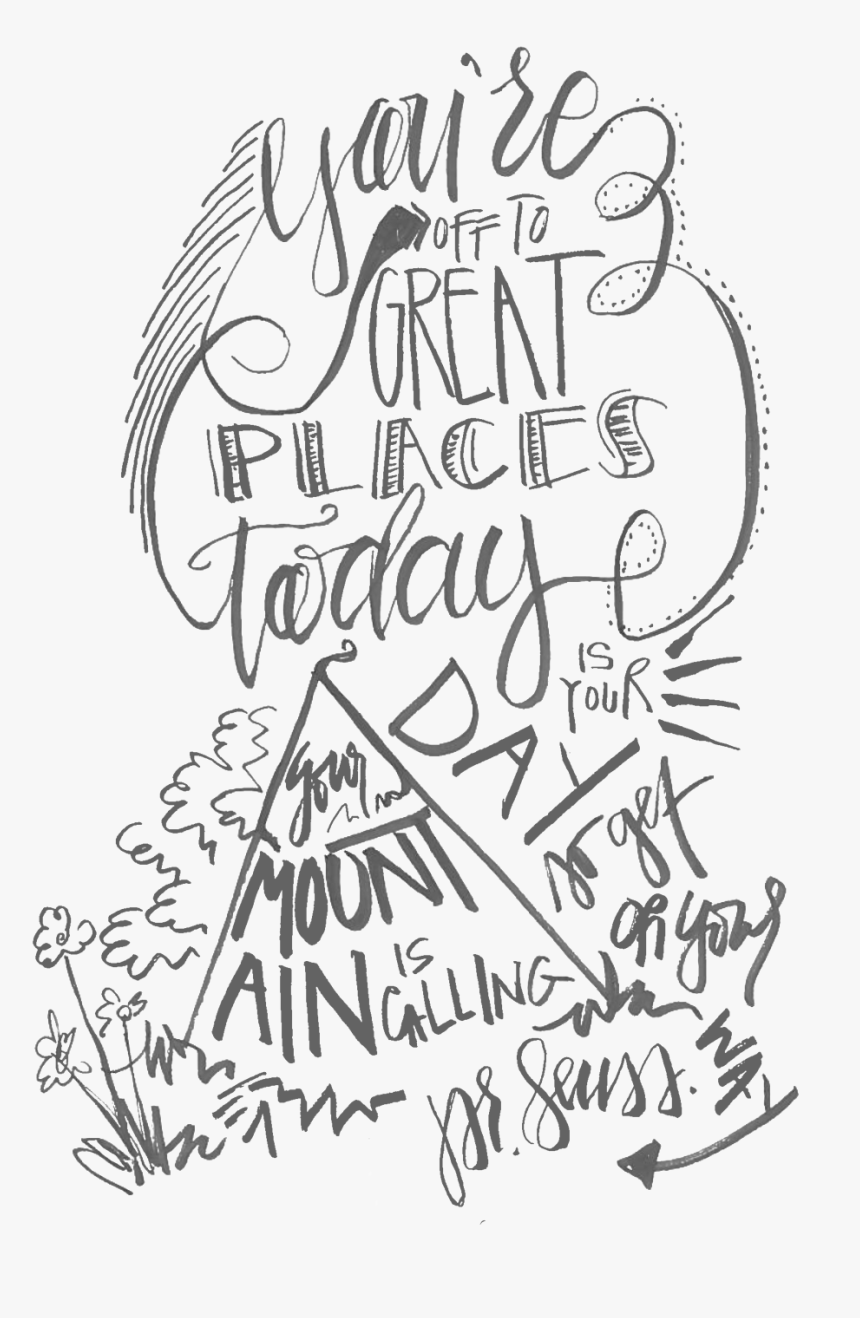 you're
OFF TO
GREAT
PLACES
today
IS
YOUR
DAY
your
MOUNT
AIN IS
CALLING
so get
on your
WAY
Dr. Seuss.